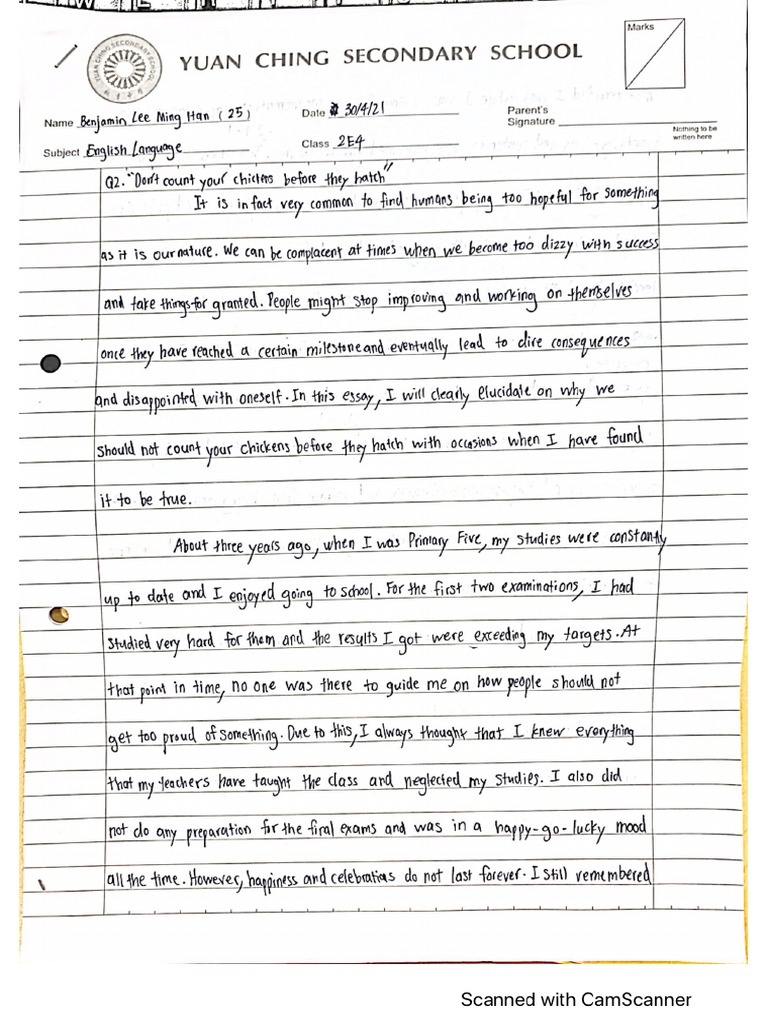 YUAN CHING SECONDARY SCHOOL
YUAN CHING SECONDARY SCHOOL
Marks
Name Benjamin Lee Ming Han (25)
Date 30/4/21
Parent's
Signature
Nothing to be
written here
Subject English Language
Class 2E4
Q2. "Don't count your chickens before they hatch"
It is in fact very common to find humans being too hopeful for something
as it is our nature. We can be complacent at times when we become too dizzy with success
and take things for granted. People might stop improving and working on themselves
once they have reached a certain milestone and eventually lead to dire consequences
and disappointed with oneself. In this essay, I will clearly elucidate on why we
should not count your chickens before they hatch with occasions when I have found
it to be true.
About three years ago, when I was Primary Five, my studies were constantly
up to date and I enjoyed going to school. For the first two examinations, I had
studied very hard for them and the results I got were exceeding my targets. At
that point in time, no one was there to guide me on how people should not
get too proud of something. Due to this, I always thought that I knew everything
that my teachers have taught the class and neglected my studies. I also did
not do any preparation for the final exams and was in a happy-go-lucky mood
all the time. However, happiness and celebrations do not last forever. I still remembered
Scanned with CamScanner